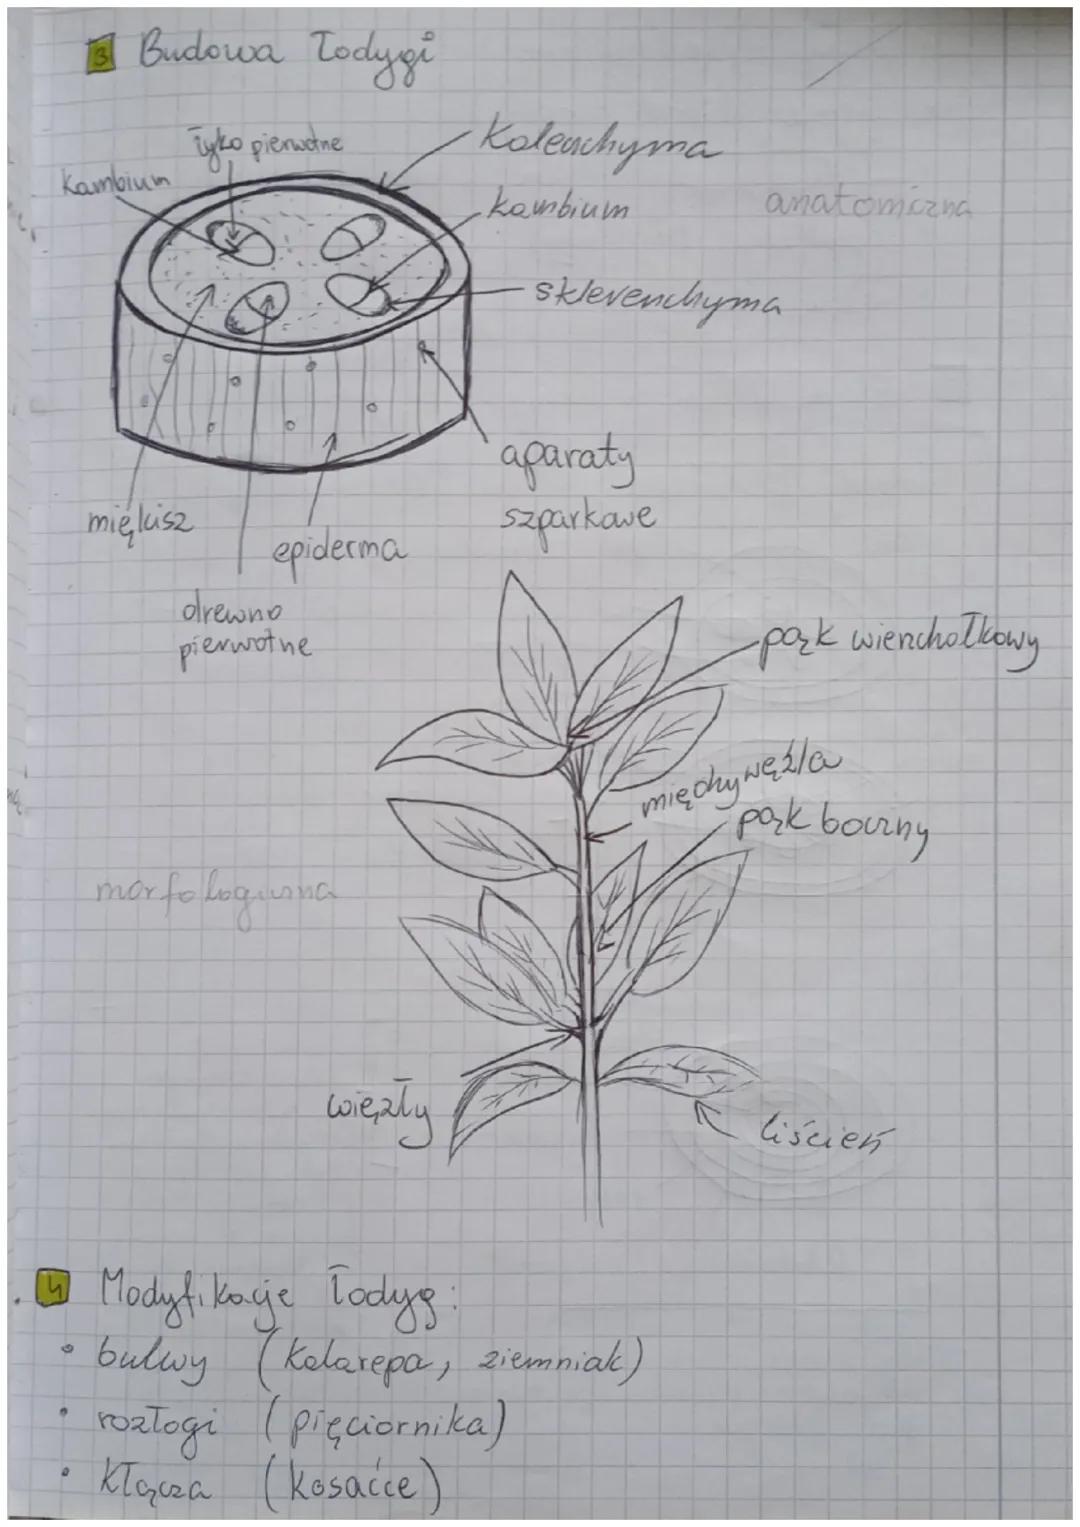 3 Budowa łodygi
łyko pierwotne
Kambium
Kolenchyma
kambium
anatomiczna
sklerenchyma
aparaty
szparkowe
miękisz
epiderma
drewno
pierwotne
pąk wierzchołkowy
międzywęźla
pąk boczny
morfologiczna
więzły
liścień
4 Modyfikacje łodyg:
• bulwy (kalarepa, ziemniak)
• rozłogi (pięciornika)
• kłącza (kosaćce)